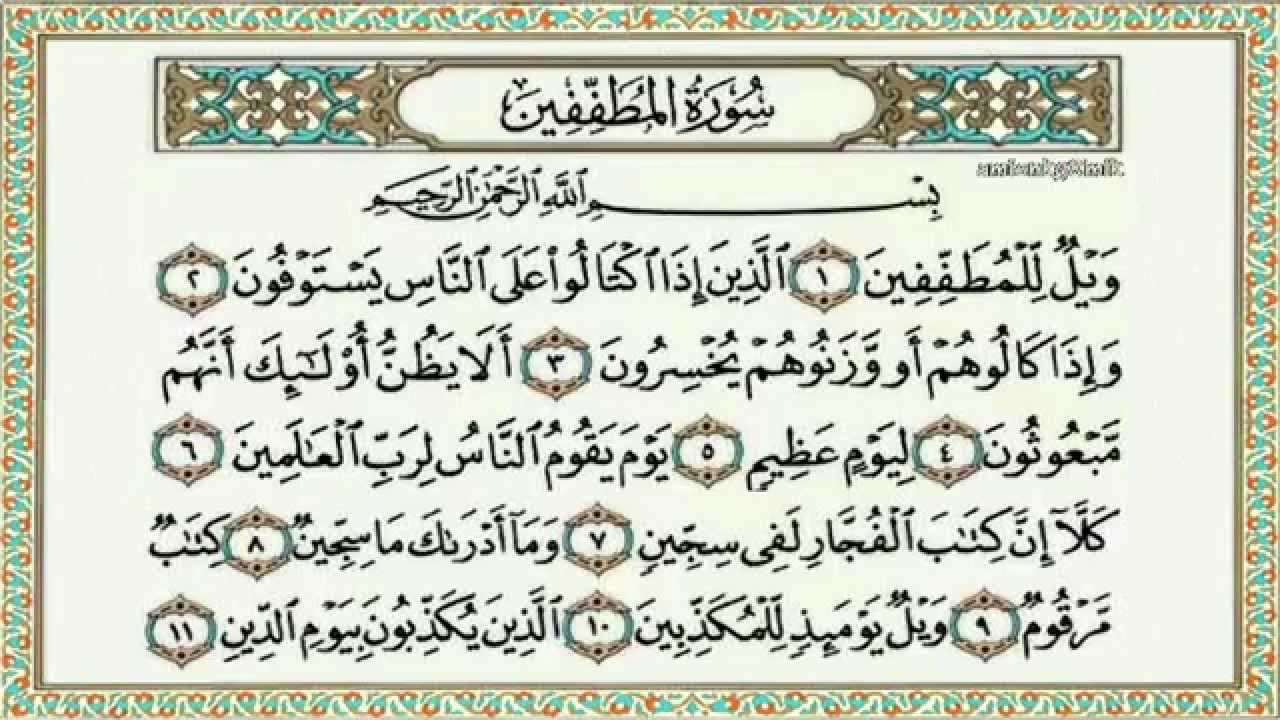 سُورَةُ المُطَفِّفِينَ
بِسْمِ ٱللَّهِ ٱلرَّحْمَٰنِ ٱلرَّحِيمِ
وَيْلٌ لِّلْمُطَفِّفِينَ ١ ٱلَّذِينَ إِذَا ٱكْتَالُوا۟ عَلَى ٱلنَّاسِ يَسْتَوْفُونَ ٢
وَإِذَا كَالُوهُمْ أَو وَّزَنُوهُمْ يُخْسِرُونَ ٣ أَلَا يَظُنُّ أُو۟لَٰٓئِكَ أَنَّهُم
مَّبْعُوثُونَ ٤ لِيَوْمٍ عَظِيمٍ ٥ يَوْمَ يَقُومُ ٱلنَّاسُ لِرَبِّ ٱلْعَٰلَمِينَ ٦
كَلَّآ إِنَّ كِتَٰبَ ٱلْفُجَّارِ لَفِى سِجِّينٍ ٧ وَمَآ أَدْرَىٰكَ مَا سِجِّينٌ ٨ كِتَٰبٌ
مَّرْقُومٌ ٩ وَيْلٌ يَوْمَئِذٍ لِّلْمُكَذِّبِينَ ١٠ ٱلَّذِينَ يُكَذِّبُونَ بِيَوْمِ ٱلدِّينِ ١١